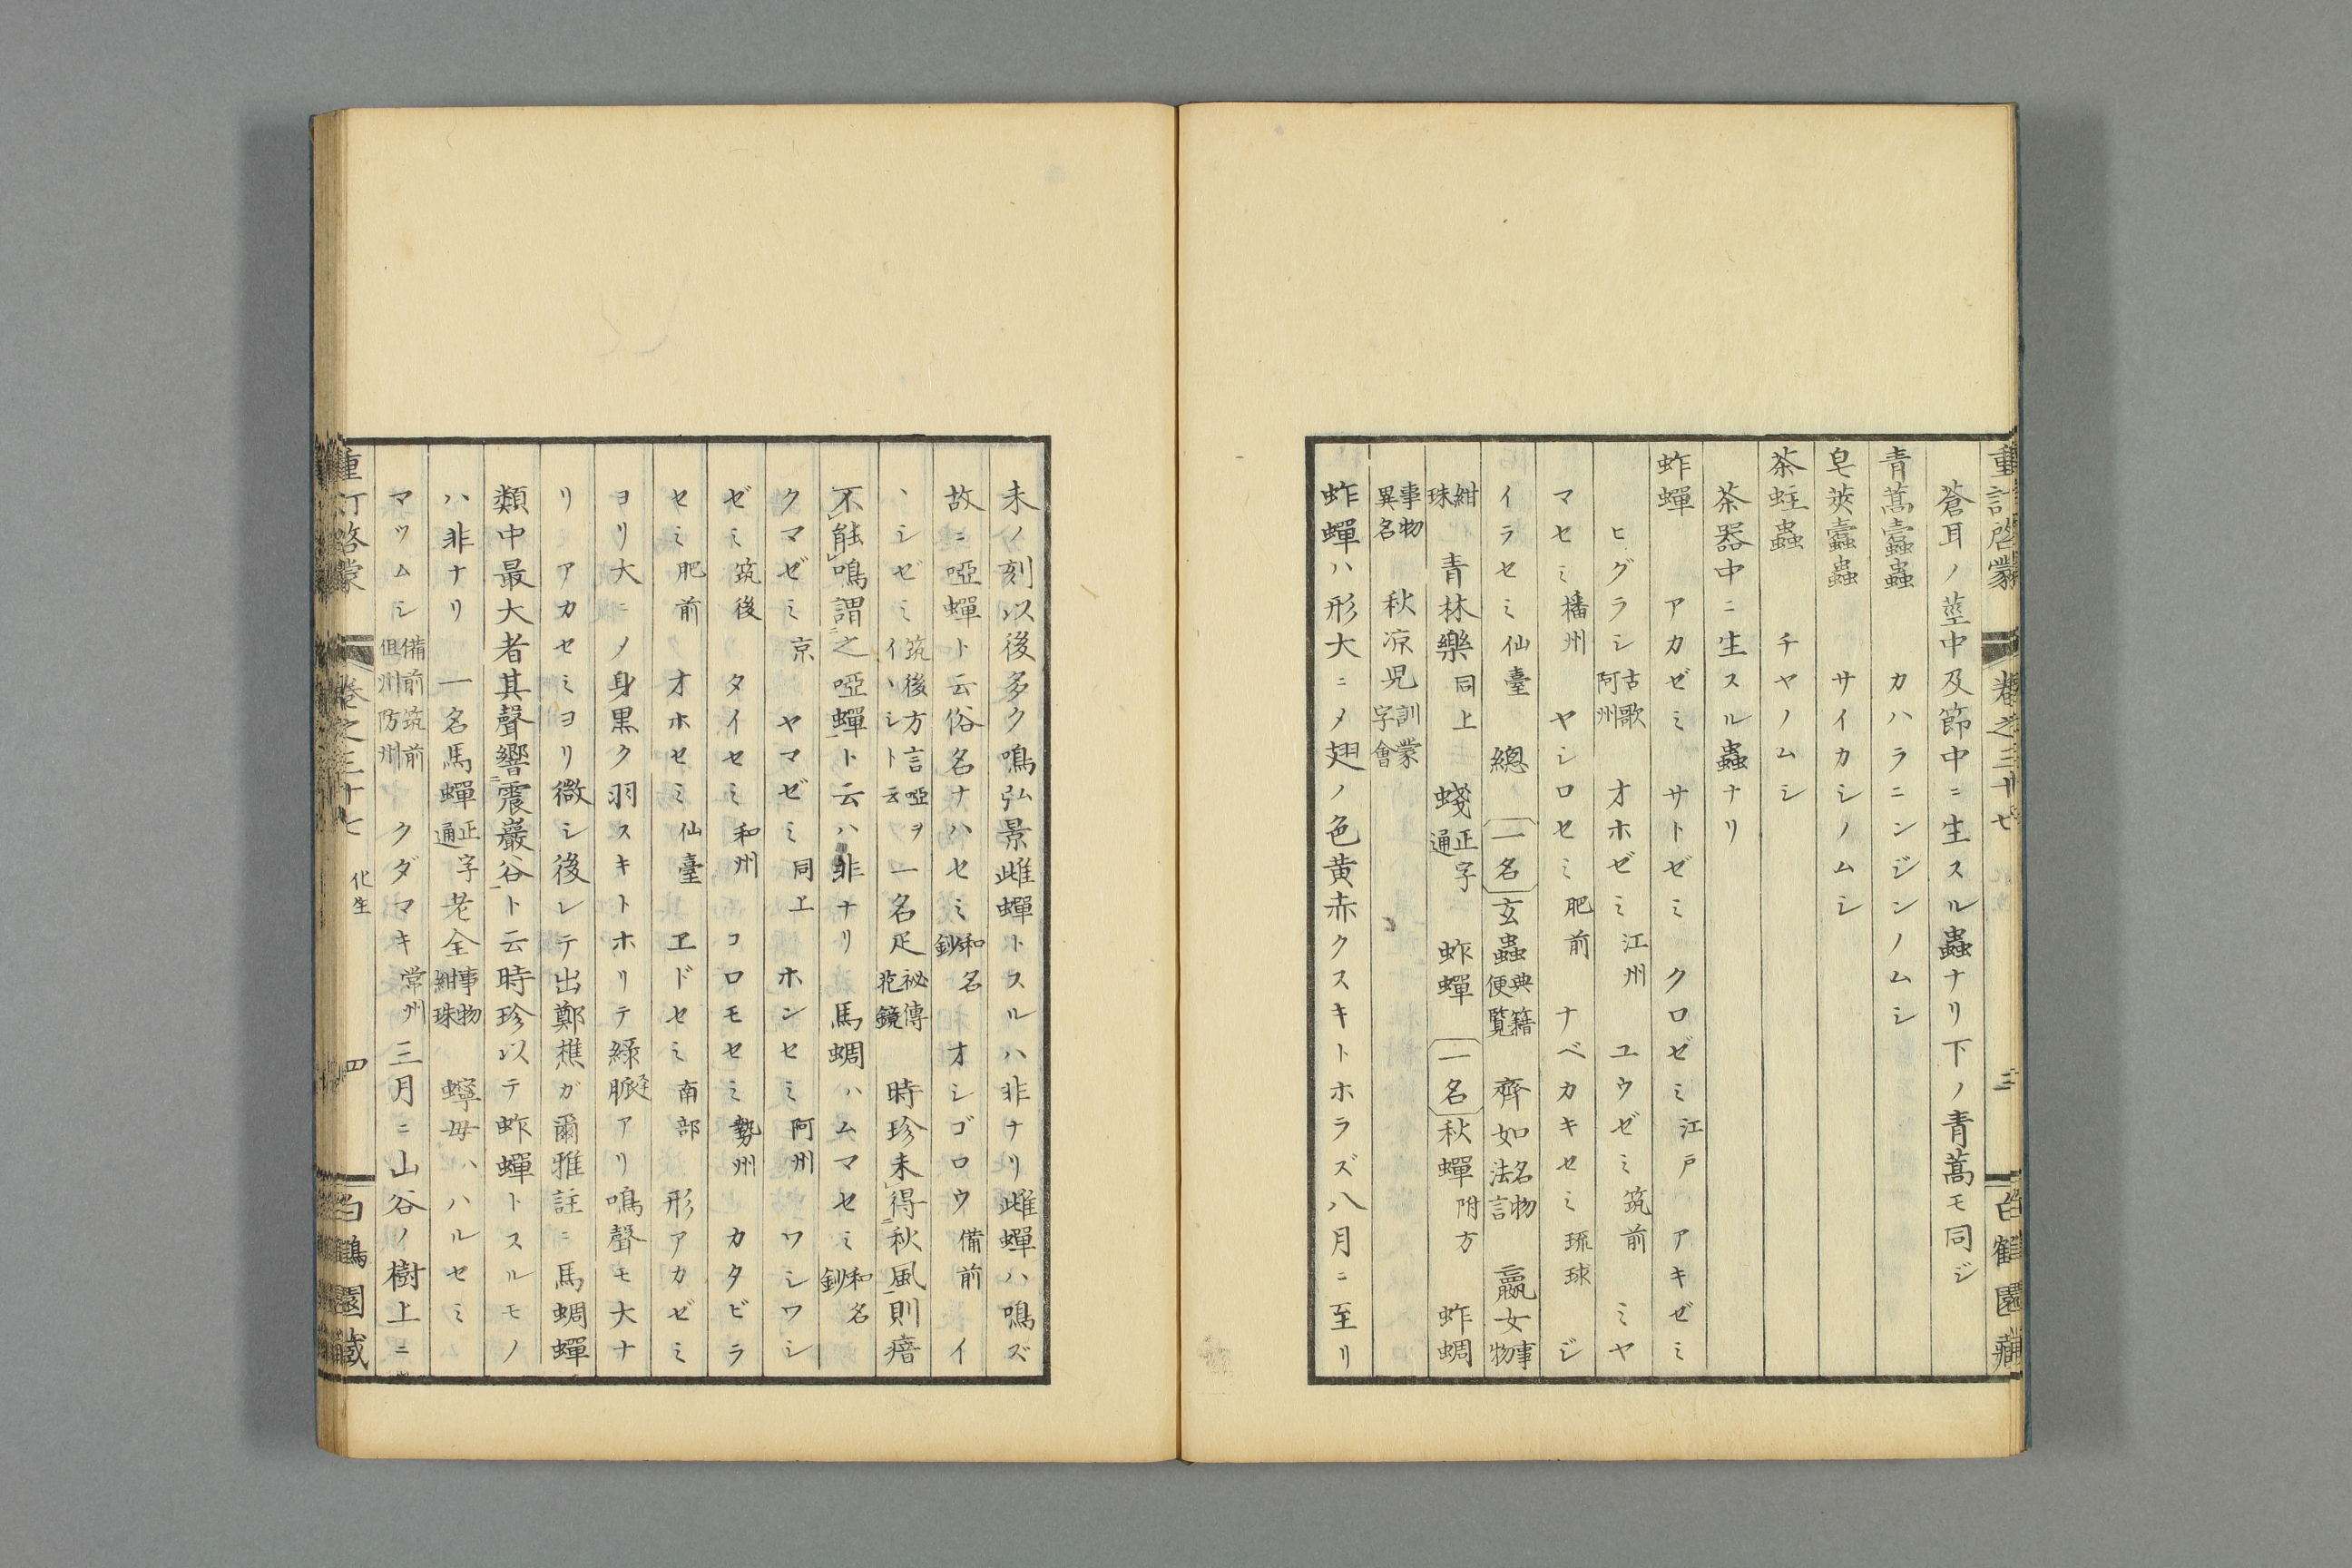 重訂啓蒙 卷之三十七 三 白鶴園藏
蒼耳ノ莖中及節中ニ生スル蟲ナリ下ノ青蒿モ同ジ
青蒿蠹蟲 カハラニンジンノムシ
皂莢蠹蟲 サイカシノムシ
茶蛀蟲 チヤノムシ
茶器中ニ生スル蟲ナリ
蚱蟬 アカゼミ サトゼミ クロゼミ江戸 アキゼミ
ヒグラシ古歌阿州 オホゼミ江州 ユウゼミ筑前 ミヤ
マセミ播州 ヤシロセミ肥前 ナベカキセミ琉球 ジ
イラセミ仙臺 總 一名玄蟲典籍便覧 齊如名物法言 嬴女事物
紺珠 青林樂同上 蝬正字通 蚱蟬 一名秋蟬附方 蚱蜩
事物異名 秋凉児訓蒙字會
蚱蟬ハ形大ニメ翅ノ色黄赤クスキトホラズ八月ニ至リ
未ノ刻以後多ク鳴弘景雌蟬トスルハ非ナリ雌蟬ハ鳴ズ
故ニ啞蟬ト云俗名ナハセミ和名鈔 オシゴロウ備前 イ
ヽシゼミ筑後方言啞ヲイヽシト云 一名疋祕傳花鏡 時珍未得秋風則瘖
不能鳴謂之啞蟬ト云ハ非ナリ 馬蜩ハムマセミ和名鈔
クマゼミ京 ヤマゼミ同上 ホンセミ阿州 ワシワシ
ゼミ筑後 タイセミ和州 コロモセミ勢州 カタビラ
セミ肥前 オホセミ仙臺 ヱドセミ南部 形アカゼミ
ヨリ大ニメ身黒ク羽スキトホリテ緑脈アリ鳴聲モ大ナ
リ アカセミヨリ微シ後レテ出鄭樵ガ爾雅註ニ馬蜩蟬
類中最大者其聲響震巖谷ト云時珍以テ蚱蟬トスルモノ
ハ非ナリ 一名馬蟬正字通 老全事物紺珠 蠬母ハハルセミ
マツムシ備前筑前但州防州 クダマキ常州 三月ニ山谷ノ樹上ニ
重訂啓蒙 卷之三十七 化生 四 白鶴園藏